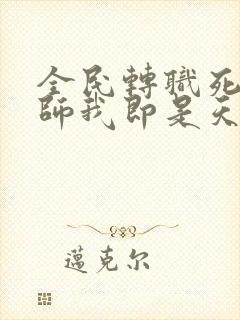 全民轉職死
師我即是天
邁克尔